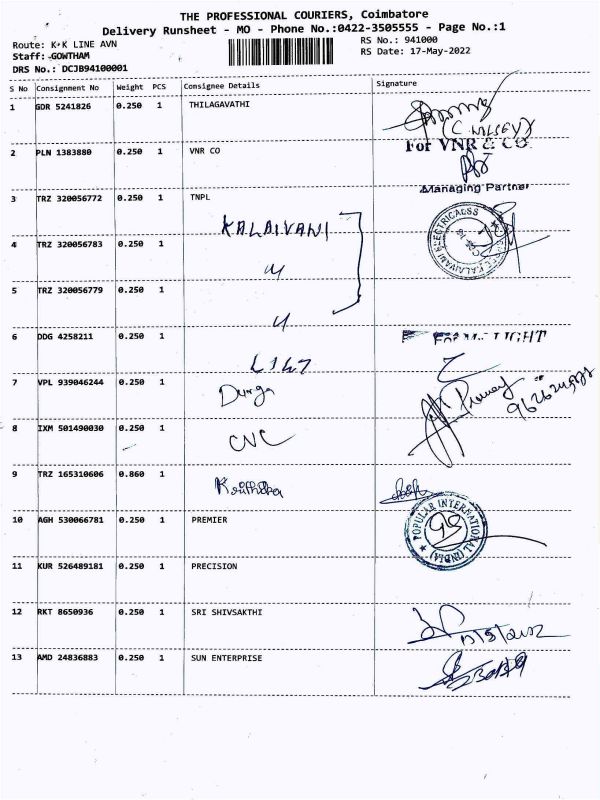 THE PROFESSIONAL COURIERS, Coimbatore
Delivery Runsheet - MO - Phone No.:0422-3505555 - Page No.:1
Route: K K LINE AVN
RS No.: 941000
Staff: GOWTHAM
RS Date: 17-May-2022
DRS No.: DCJB94100001
S No Consignment No Weight PCS Consignee Details Signature
1 GDR 5241826 0.250 1 THILAGAVATHI
2 PLN 1383880 0.250 1 VNR CO
For VNR & CO.
Managing Partner
3 TRZ 320056772 0.250 1 TNPL
KALAIVANI
4 TRZ 320056783 0.250 1
5 TRZ 320056779 0.250 1
6 DDG 4258211 0.250 1
LIGHT
7 VPL 939046244 0.250 1 Durga
8 IXM 501490030 0.250 1 CNC
9 TRZ 165310606 0.860 1 Krithika
10 AGH 530066781 0.250 1 PREMIER
POPULAR INTERNATIONAL (INDIA)
11 KUR 526489181 0.250 1 PRECISION
12 RKT 8650936 0.250 1 SRI SHIVSAKTHI
13 AMD 24836883 0.250 1 SUN ENTERPRISE